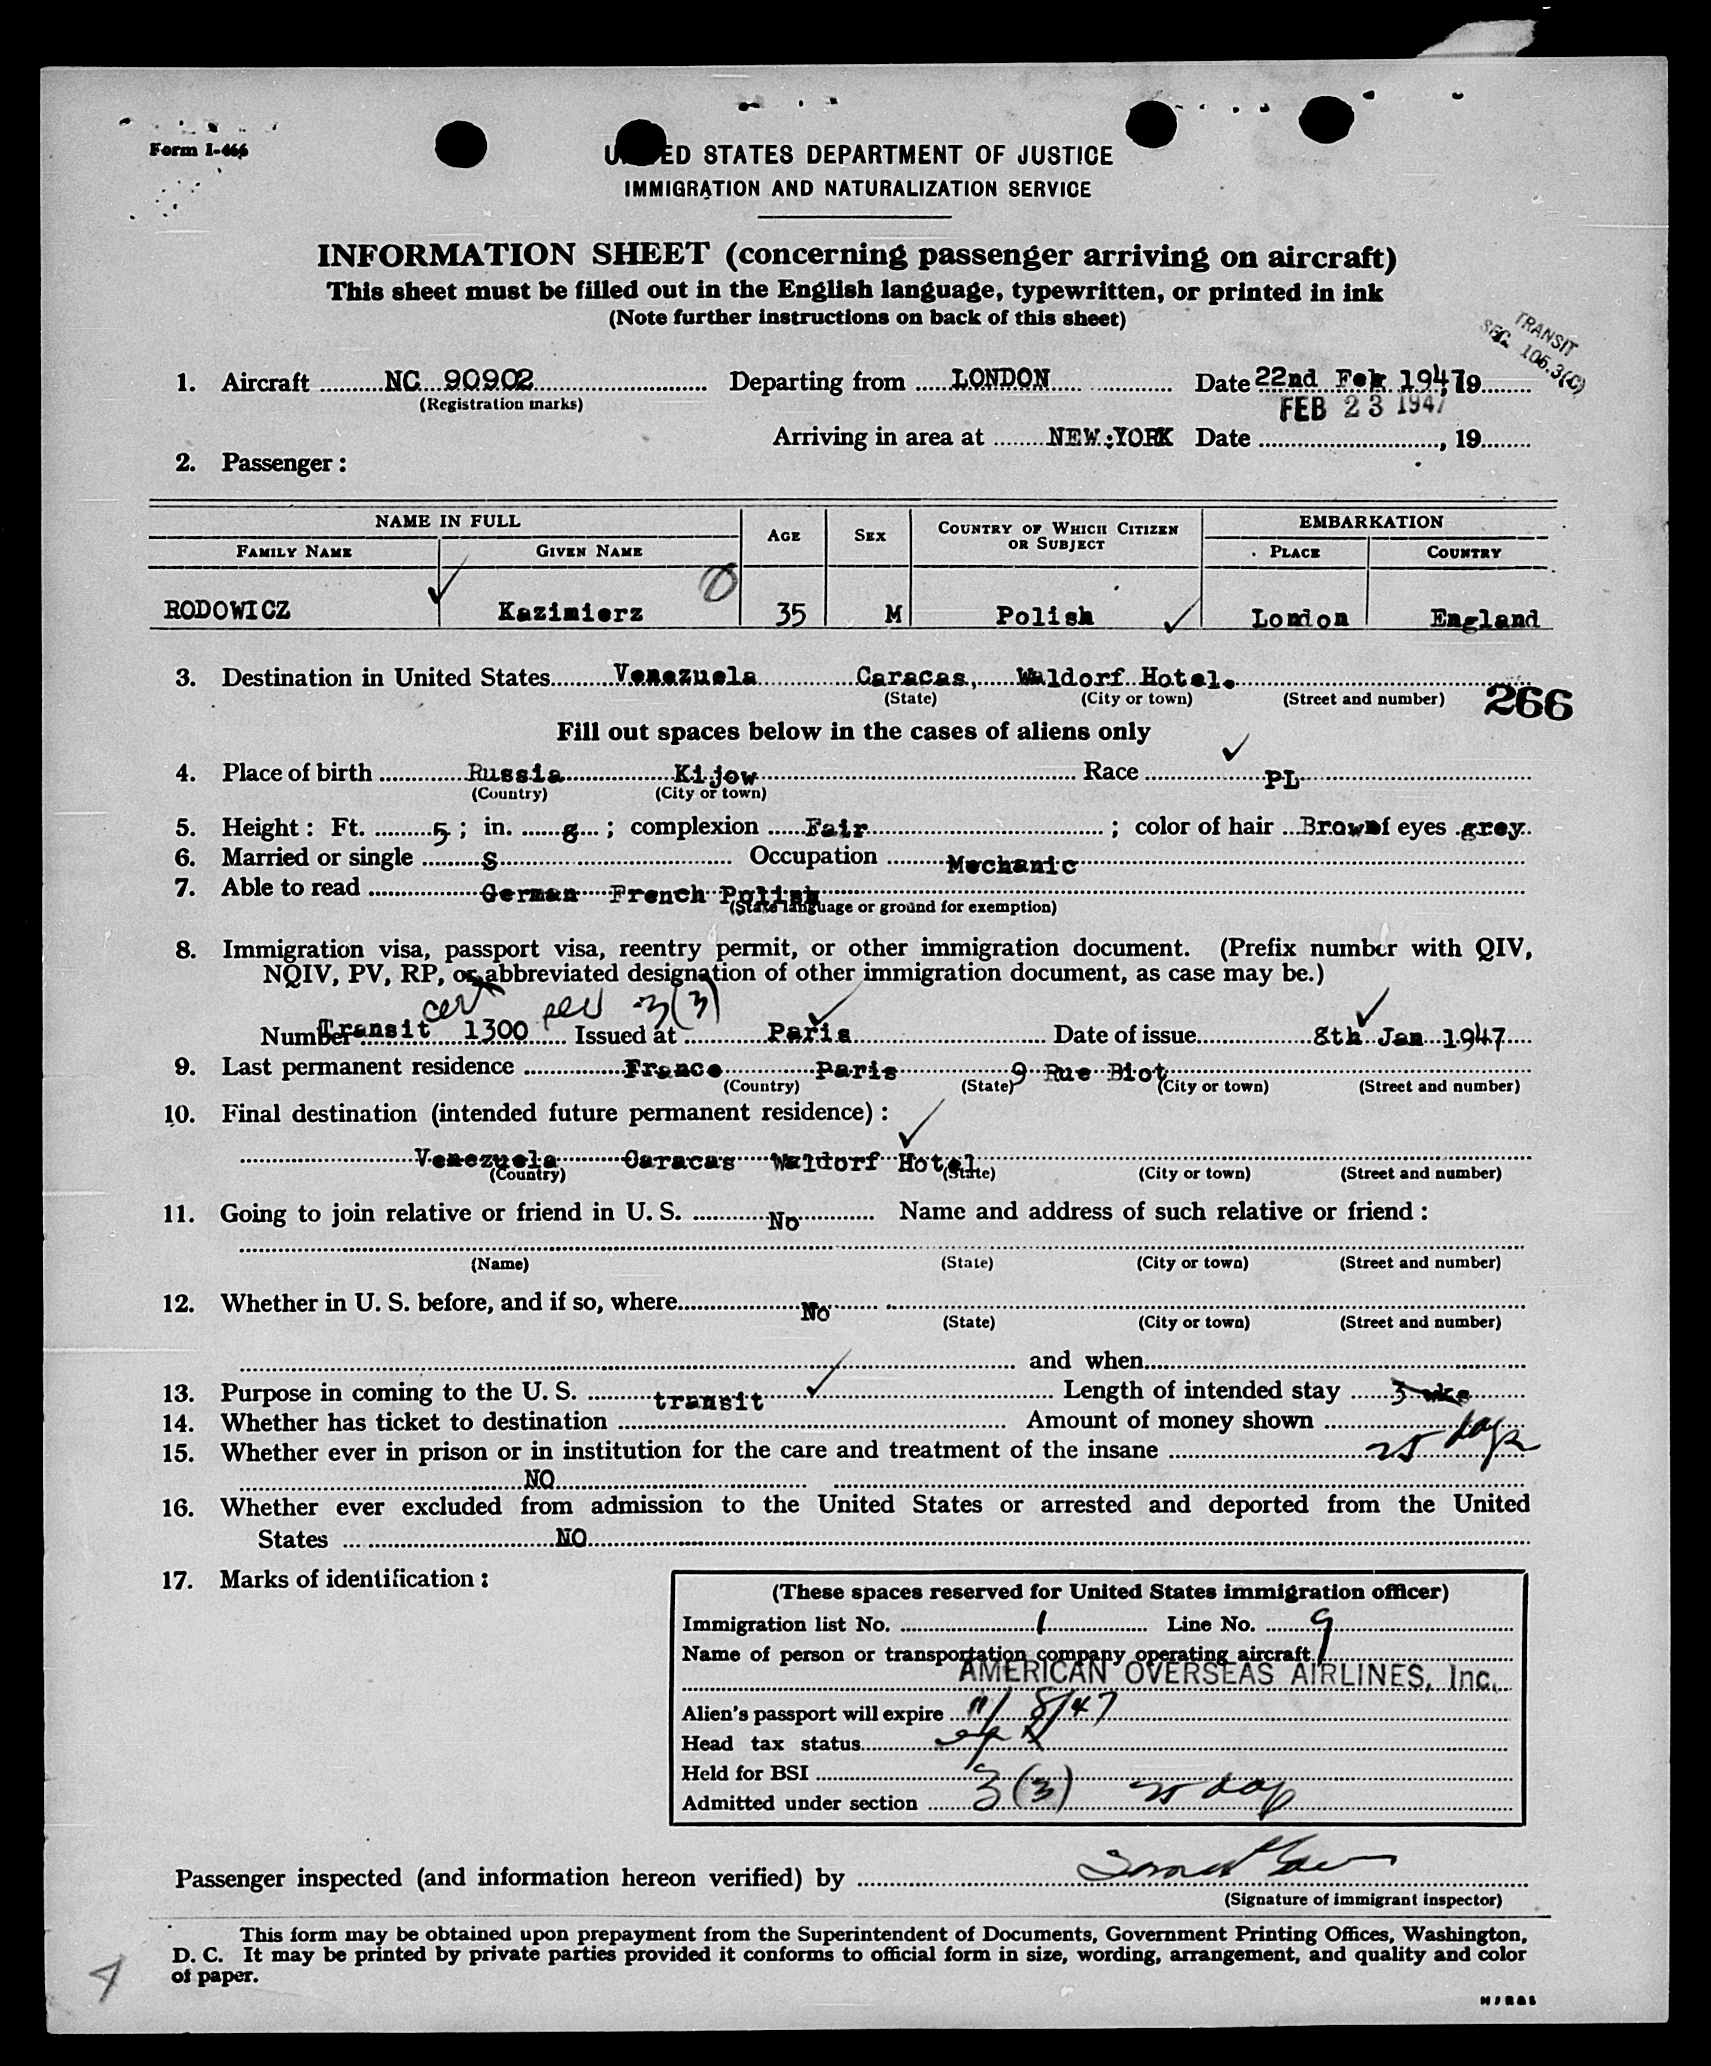 Form I-466
UNITED STATES DEPARTMENT OF JUSTICE
IMMIGRATION AND NATURALIZATION SERVICE
INFORMATION SHEET (concerning passenger arriving on aircraft)
This sheet must be filled out in the English language, typewritten, or printed in ink
(Note further instructions on back of this sheet)
TRANSIT
SEC. 106.3(C)
1. Aircraft NC 90902 Departing from LONDON Date 22nd Feb 1947, 19
(Registration marks) FEB 23 1947
Arriving in area at NEW YORK Date , 19
2. Passenger:
NAME IN FULL AGE SEX COUNTRY OF WHICH CITIZEN OR SUBJECT EMBARKATION
FAMILY NAME GIVEN NAME PLACE COUNTRY
RODOWICZ Kazimierz 35 M Polish London England
3. Destination in United States Venezuela Caracas, Waldorf Hotel.
(State) (City or town) (Street and number) 266
Fill out spaces below in the cases of aliens only
4. Place of birth Russia Kijow Race PL
(Country) (City or town)
5. Height: Ft. 5; in. 8; complexion Fair; color of hair Brown of eyes grey
6. Married or single S Occupation Mechanic
7. Able to read German French Polish
(State language or ground for exemption)
8. Immigration visa, passport visa, reentry permit, or other immigration document. (Prefix number with QIV,
NQIV, PV, RP, or abbreviated designation of other immigration document, as case may be.)
cert 3(3)
Number Transit 1300 Issued at Paris Date of issue 8th Jan 1947
9. Last permanent residence France Paris 9 Rue Biot
(Country) (State) (City or town) (Street and number)
10. Final destination (intended future permanent residence):
Venezuela Caracas Waldorf Hotel
(Country) (State) (City or town) (Street and number)
11. Going to join relative or friend in U. S. No Name and address of such relative or friend:
(Name) (State) (City or town) (Street and number)
12. Whether in U. S. before, and if so, where No
(State) (City or town) (Street and number)
and when
13. Purpose in coming to the U. S. transit Length of intended stay 3 wks
14. Whether has ticket to destination Amount of money shown
15. Whether ever in prison or in institution for the care and treatment of the insane 25 days
NO
16. Whether ever excluded from admission to the United States or arrested and deported from the United
States NO
17. Marks of identification:
(These spaces reserved for United States immigration officer)
Immigration list No. 1 Line No. 9
Name of person or transportation company operating aircraft
AMERICAN OVERSEAS AIRLINES, Inc.
Alien's passport will expire 11/8/47
Head tax status
Held for BSI
Admitted under section 3(3) 25 days
Passenger inspected (and information hereon verified) by
(Signature of immigrant inspector)
This form may be obtained upon prepayment from the Superintendent of Documents, Government Printing Offices, Washington,
D. C. It may be printed by private parties provided it conforms to official form in size, wording, arrangement, and quality and color
of paper.
4